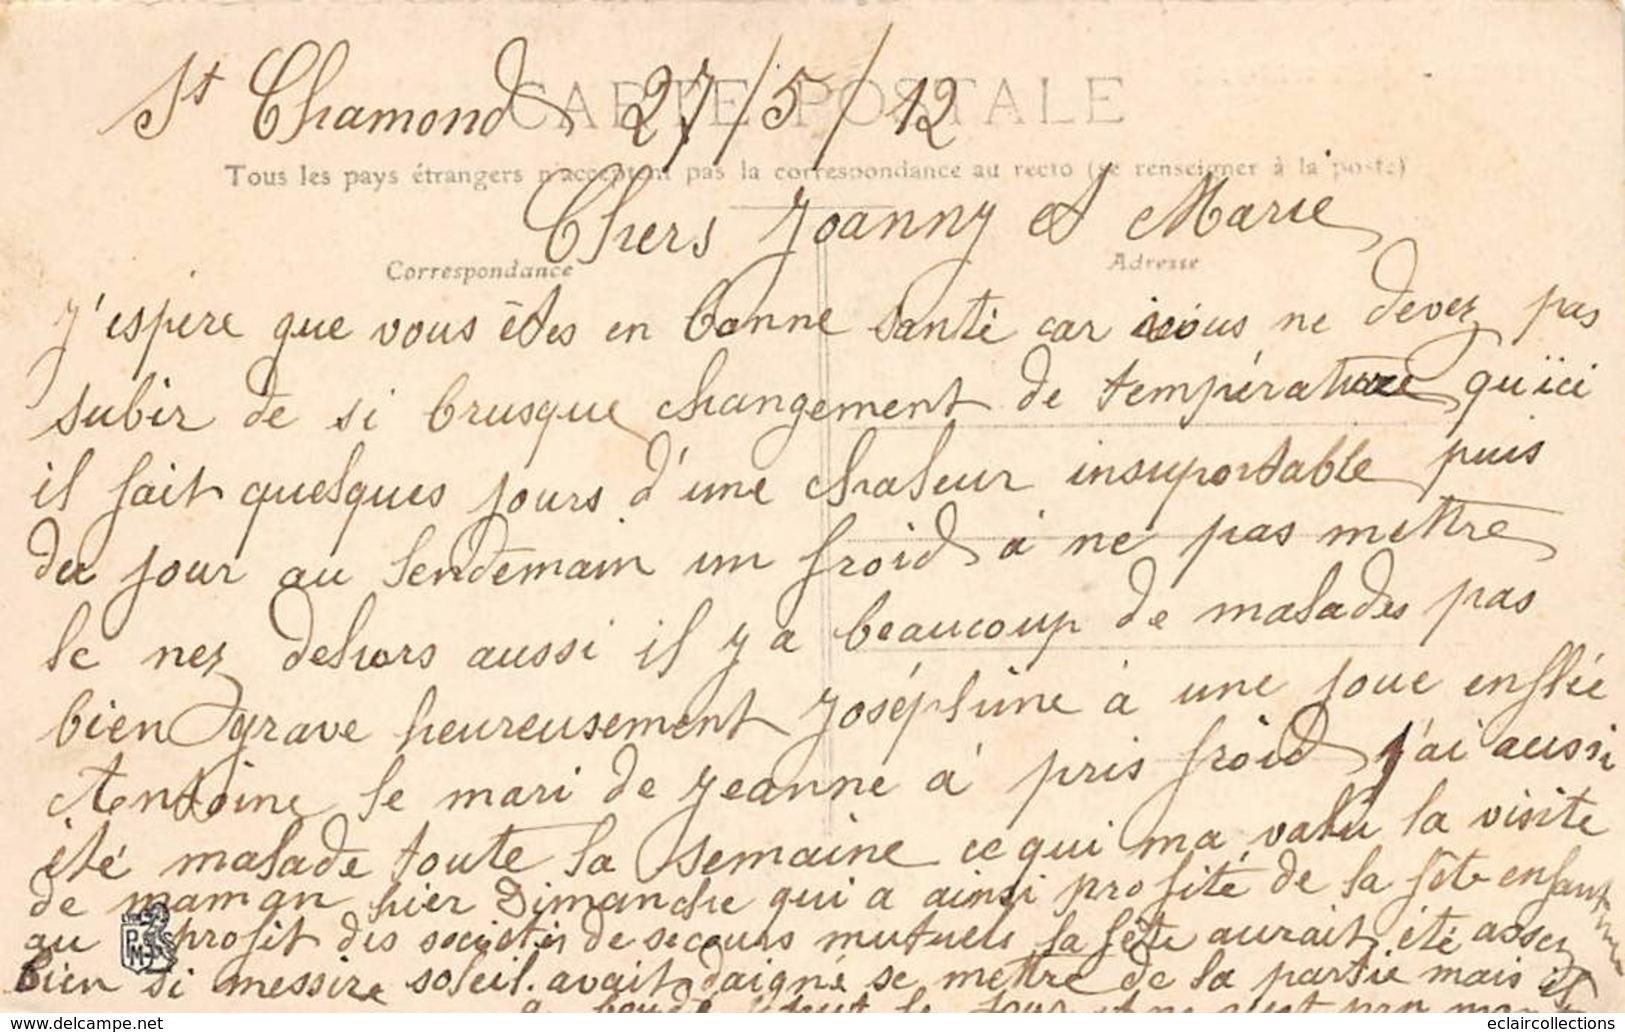 St Chamond 27/5/12
CARTE POSTALE
Tous les pays étrangers n'acceptent pas la correspondance au recto (se renseigner à la poste)
Chers Joanny et Marie
Correspondance
Adresse
J'espère que vous êtes en bonne santé car vous ne devez pas
subir de si brusque changement de température qu'ici
il fait quelques jours d'une chaleur insuportable puis
du jour au lendemain un froid à ne pas mettre
le nez dehors aussi il y a beaucoup de malades pas
bien grave heureusement Joséphine à une joue enflée
Antoine le mari de Jeanne à pris froid j'ai aussi
été malade toute la semaine ce qui ma valu la visite
de maman hier Dimanche qui a ainsi profité de la fête enfantine
au profit des sociétés de secours mutuels la fête aurait été assez
bien si messire soleil avait daigné se mettre de la partie mais il
a boudé tout le jour et ce n'est pas
PMJS
eclaircollections
https://www.delcampe.net
eclaircollections